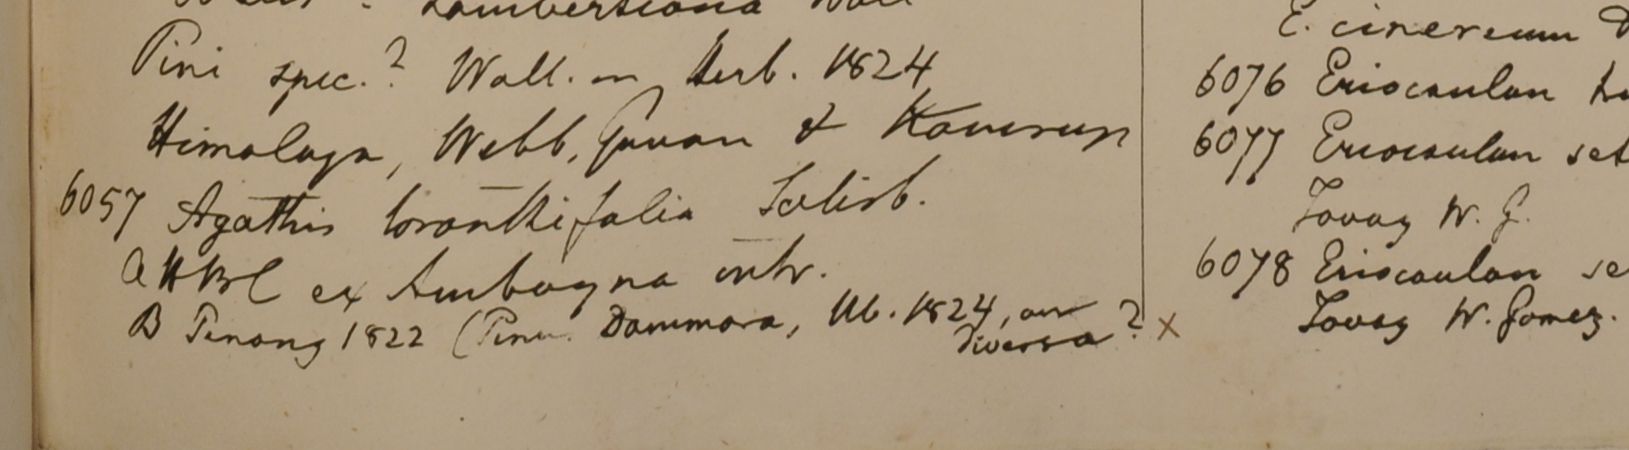 Lambertiana Wall
Pini spec.? Wall. in Herb. 1824
Himalaya, Webb, Govan & Kamrup
6057 Agathis loranthifolia Salisb.
a HBC ex Amboyna intr.
B Penang 1822 (Pinu. Dammara, Wb. 1824, an
diversa?
×
E. cinereum
6076 Eriocaulon
6077 Eriocaulon set
Tavoy W. G.
6078 Eriocaulon se
Tavoy W. Gomez.